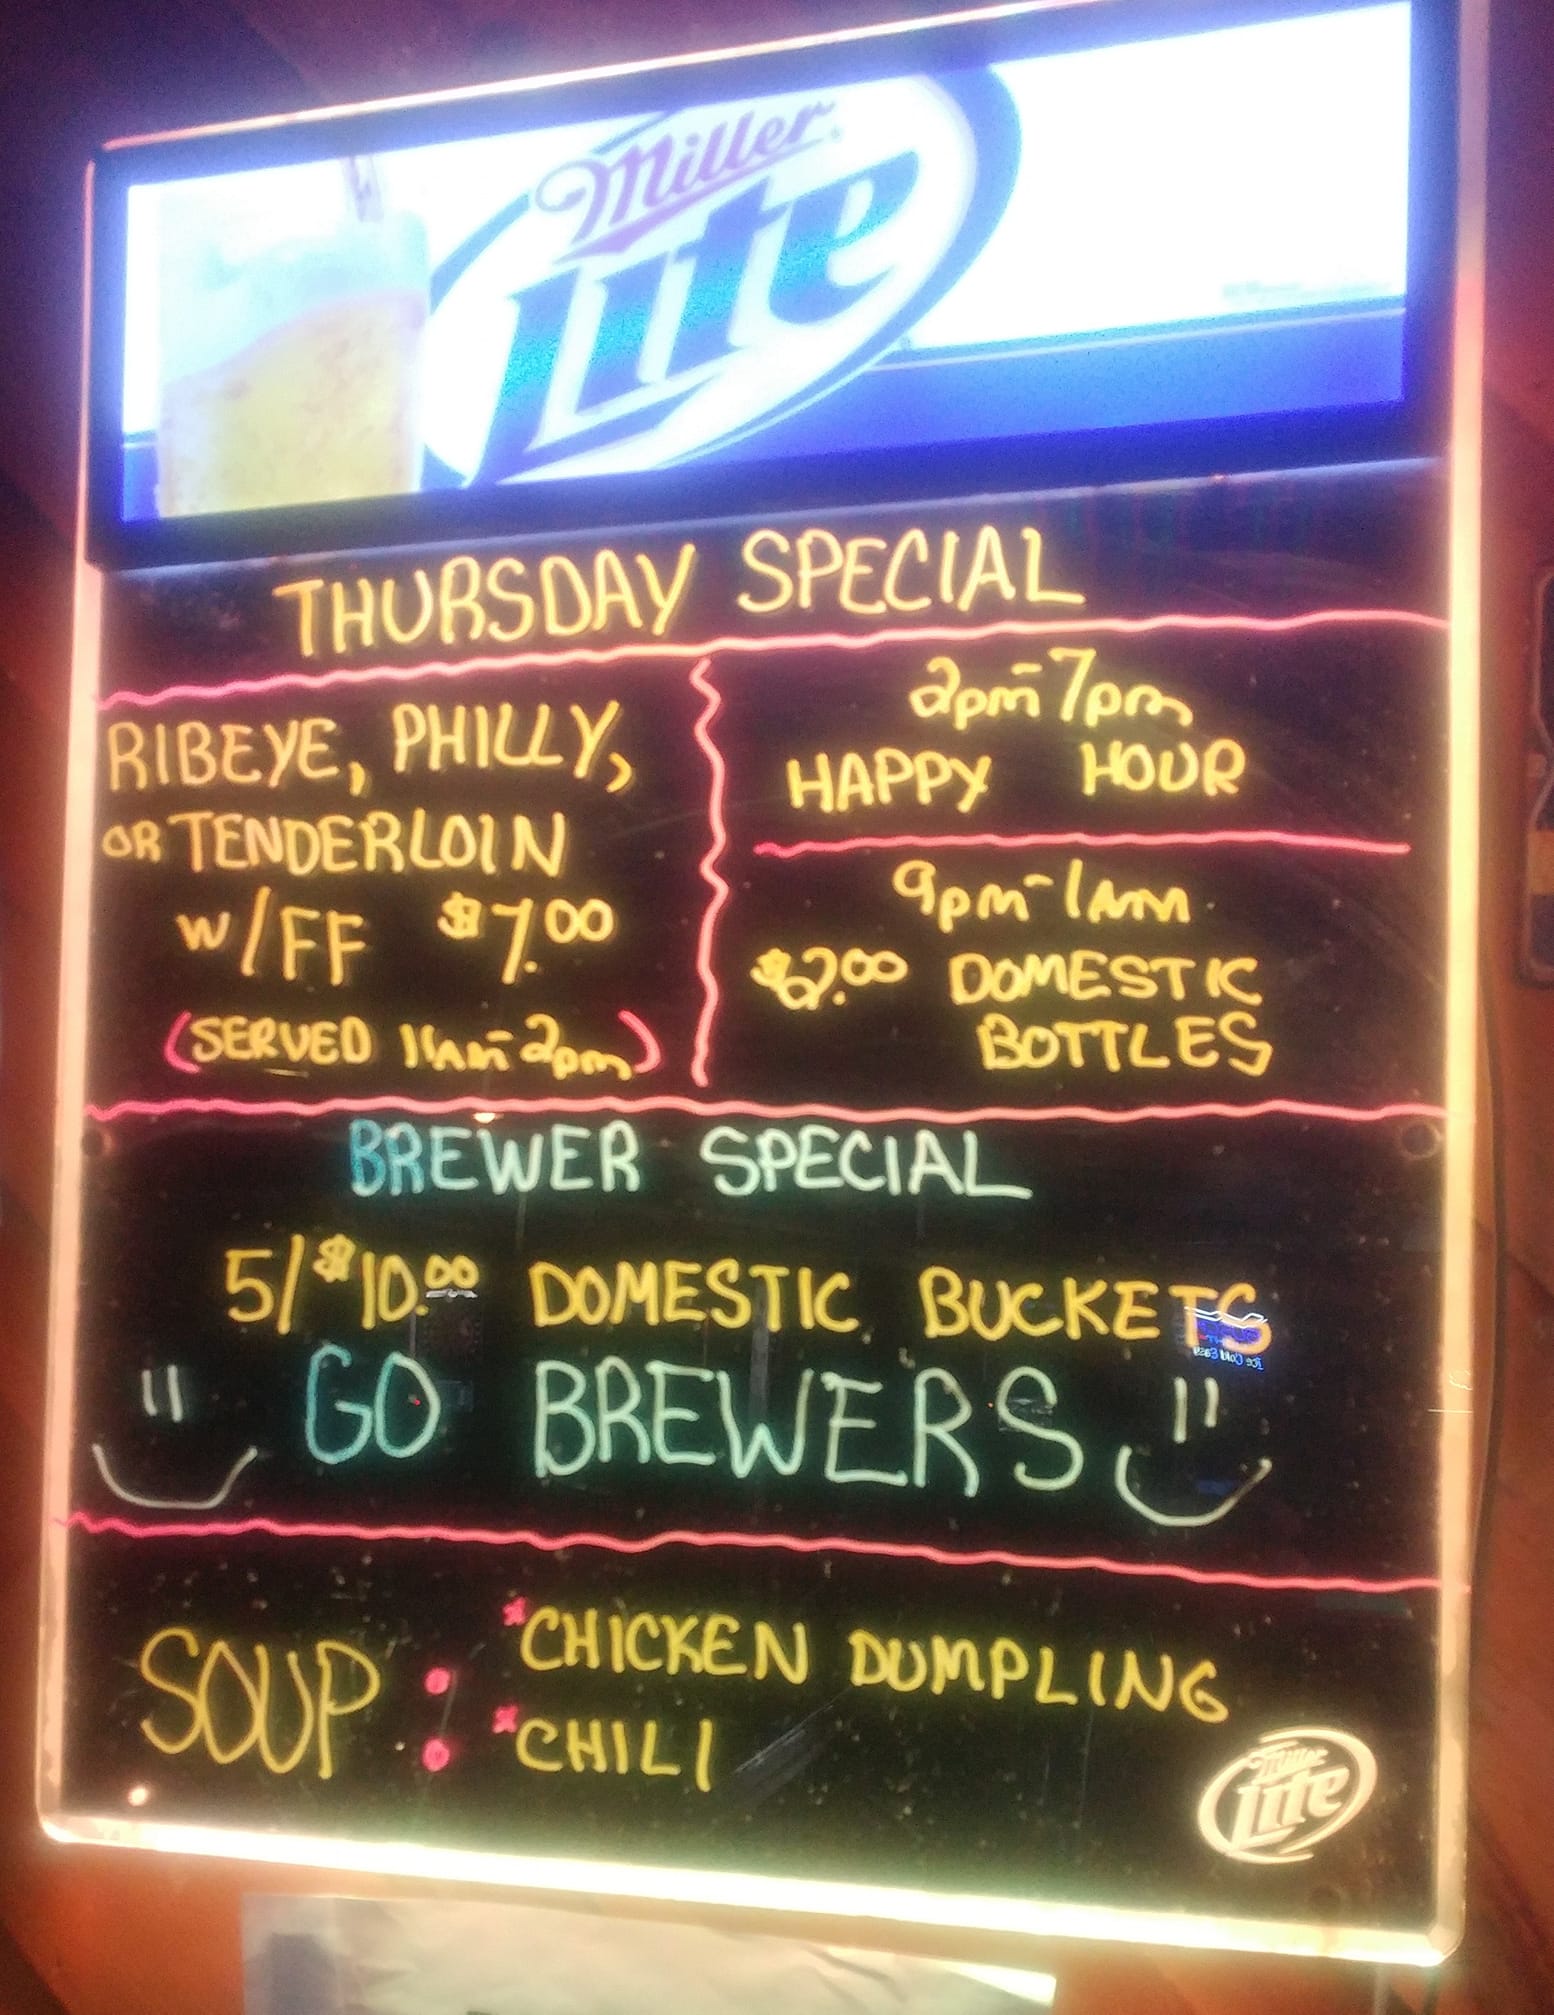 Miller
Lite
THURSDAY SPECIAL
RIBEYE, PHILLY,
OR TENDERLOIN
W/FF $7.00
(SERVED 11AM-2pm)
2pm-7pm
HAPPY HOUR
9pm-1AM
$2.00 DOMESTIC
BOTTLES
BREWER SPECIAL
5/$10.00 DOMESTIC BUCKETS
GO BREWERS
SOUP:
*CHICKEN DUMPLING
*CHILI
Miller
Lite